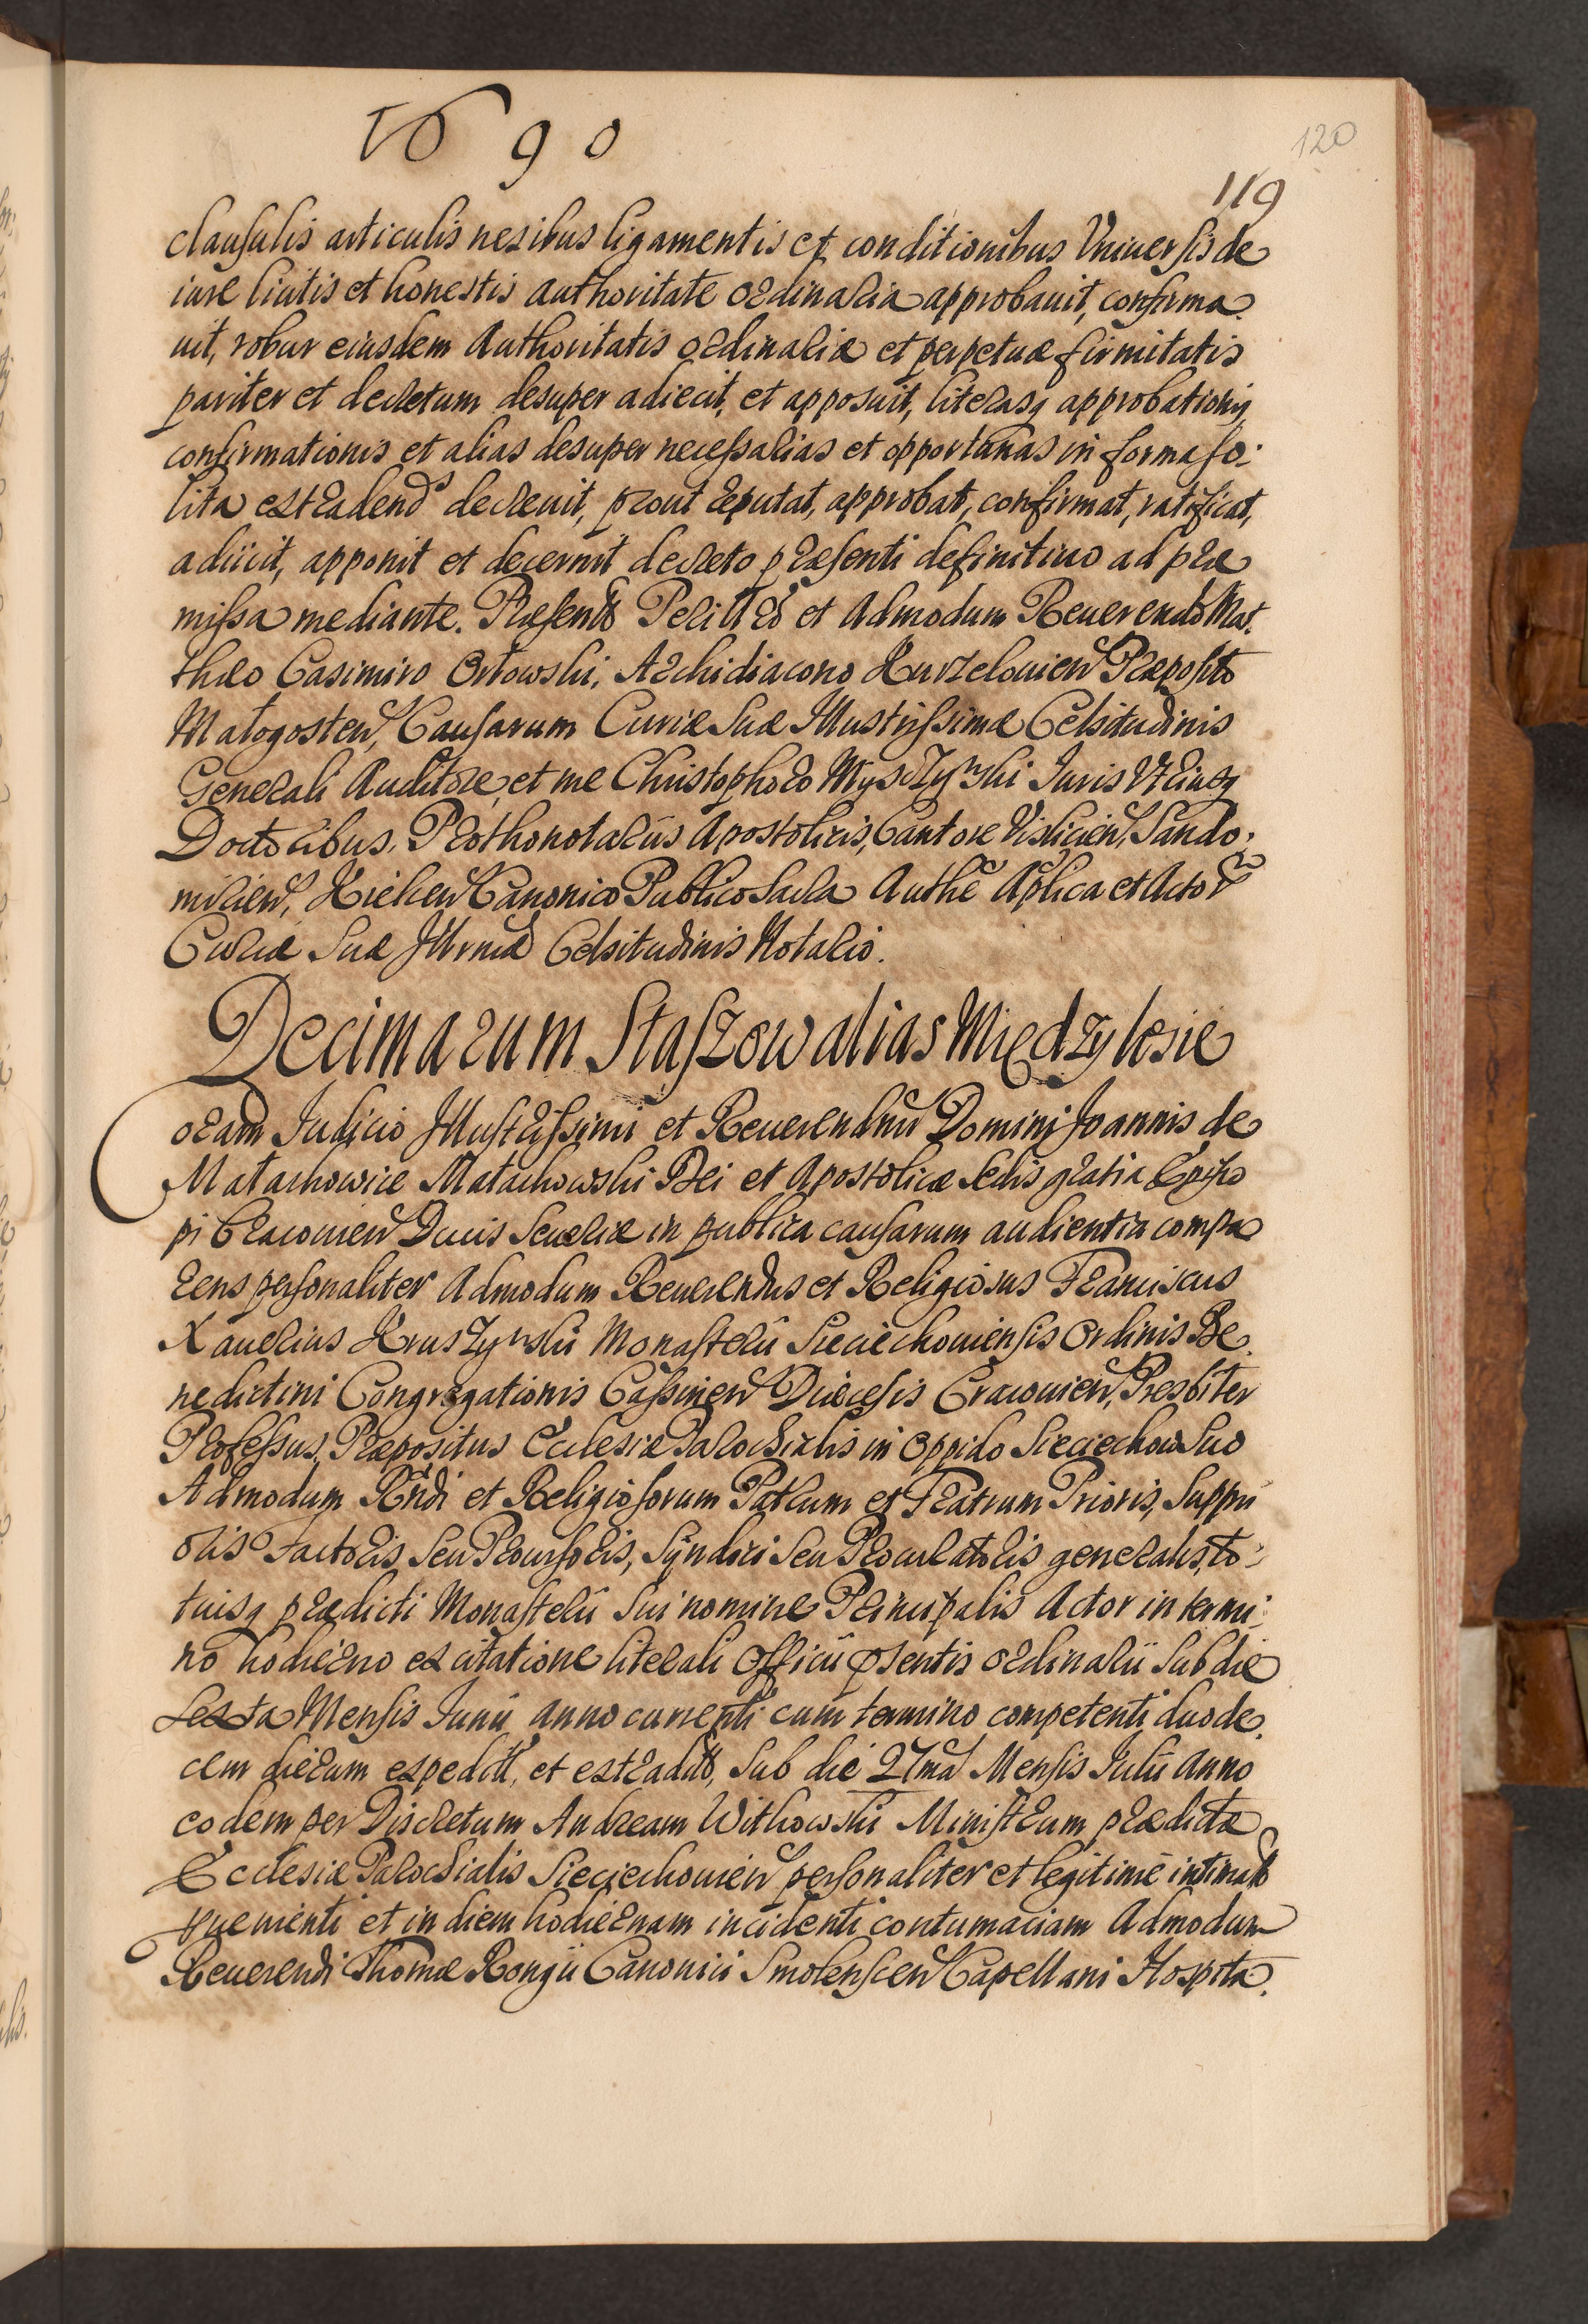 1690
120
119
clausulis articulis nexibus ligamentis et conditionibus Vniuersis de
iure licitis et honestis authoritate ordinaria approbauit, confirma
uit, robur eiusdem Authoritatis ordinariæ et perpetuæ firmitatis
pariter et decretum desuper adiecit, et apposuit, literasq approbationis
confirmationis et alias desuper necessarias et opportunas in forma so:
lita extradend decreuit, prout reputat, approbat, confirmat, ratificat,
adiicit, apponit et decernit decreto præsenti definitiuo ad præ
missa mediante. Præsentb Perillrb et Admodum Reuerendb Mat.
thæo Casimiro Orłowski, Archidiacono Kurzelouien Præposito
Małogosten, Causarum Curiæ Suæ Illustrissimæ Celsitudinis
Generali Auditore, et me Christophoro Myszyński Iuris Vtriusq
Doctoribus, Prothonotariis Apostolicis, Cantore Vislicien, Sando:
mirien, Kielcen Canonico Publico Sacra Authê Aplica et Actor
Curiæ Suæ Illrmæ Celsitudinis Notario.
Decimarum Staszow alias Międzylesie
Coram Iudicio Illustrissimi et Reuerendmi Domini Joannis de
Małachowice Małachowski Dei et Apostolicæ Sedis gratia Episco
pi Cracouien Ducis Seueriæ in publica causarum audientia compa
rens personaliter Admodum Reuerendus et Religiosus Franciscus
Xauerius Kruszyński Monasterii Sieciechouiensis Ordinis Be
nedictini Congregationis Cassinen Diæcesis Cracouien, Presbiter
Professus, Præpositus Ecclesiæ Parochialis in Oppido Sieciechow Suo
Admodum Rndi et Religiosorum Patrum et Fratrum Prioris, Suppri
oris Factoris Seu Prouisoris, Syndici Seu Procuratoris generalis, to:
tiusq prædicti Monasterii Sui nomine Principalis Actor in termi:
no hodierno ex citatione literali Officii psentis ordinarii Sub die
Sexta Mensis Iunii anno currenti cum termino competenti duode
cim dierum expedit, et extradit, Sub die 27ma Mensis Iulii Anno
eodem per Discretum Andream Witkowski Ministrum prædictæ
Ecclesiæ Parochialis Sieciechouien personaliter et legitime intimat
pueniēnti et in diem hodiernam incidenti contumaciam Admodum
Reuerendi Thomæ Rongii Canonici Smolenscen Capellani Hospita